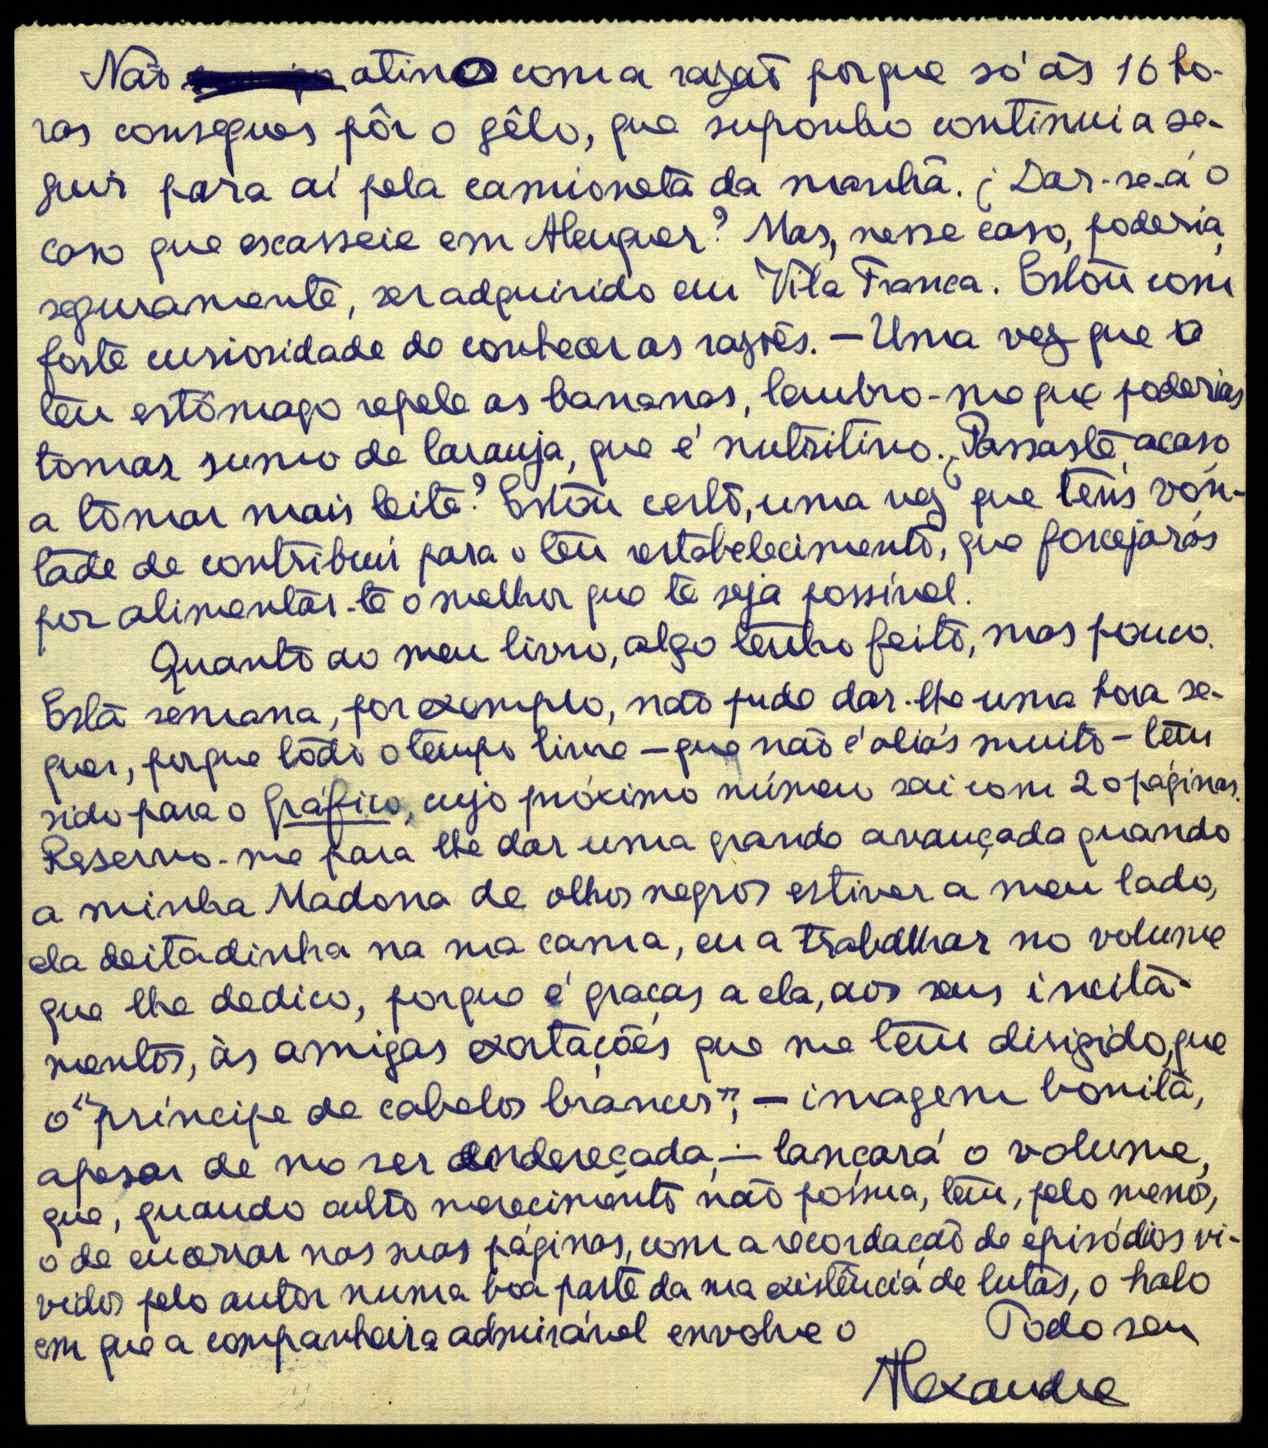 Não atino com a razão porque só às 16 ho-
ras consegues pôr o gêlo, que suponho continui a se-
guir para aí pela camioneta da manhã. ¿ Dar-se-á o
caso que escasseie em Alenquer? Mas, nesse caso, poderia,
seguramente, ser adquirido em Vila Franca. Estou com
forte curiosidade de conhecer as razões. — Uma vez que o
teu estômago repele as bananas, lembro-me que poderias
tomar sumo de laranja, que é nutritivo. ¿ Passaste, acaso,
a tomar mais leite? Estou certo, uma vez que tens von-
tade de contribuir para o teu restabelecimento, que forcejarás
por alimentar-te o melhor que te seja possível.
Quanto ao meu livro, algo tenho feito, mas pouco.
Esta semana, por exemplo, não pude dar-lhe uma hora se-
quer, porque todo o tempo livre — que não é aliás muito — tem
sido para o Gráfico, cujo próximo número sai com 20 páginas.
Reservo-me para lhe dar uma grande avançada quando
a minha Madona de olhos negros estiver a meu lado,
ela deitadinha na sua cama, eu a trabalhar no volume
que lhe dedico, porque é graças a ela, aos seus incita-
mentos, às amigas exortações que me tem dirigido, que
o "príncipe de cabelos brancos", — imagem bonita,
apesar de me ser endereçada, — lançará o volume,
que, quando outro merecimento não possua, tem, pelo menos,
o de encerrar nas suas páginas, com a recordação de episódios vi-
vidos pelo autor numa boa parte da sua existência de lutas, o halo
em que a companheira admirável envolve o Todo seu
Alexandre